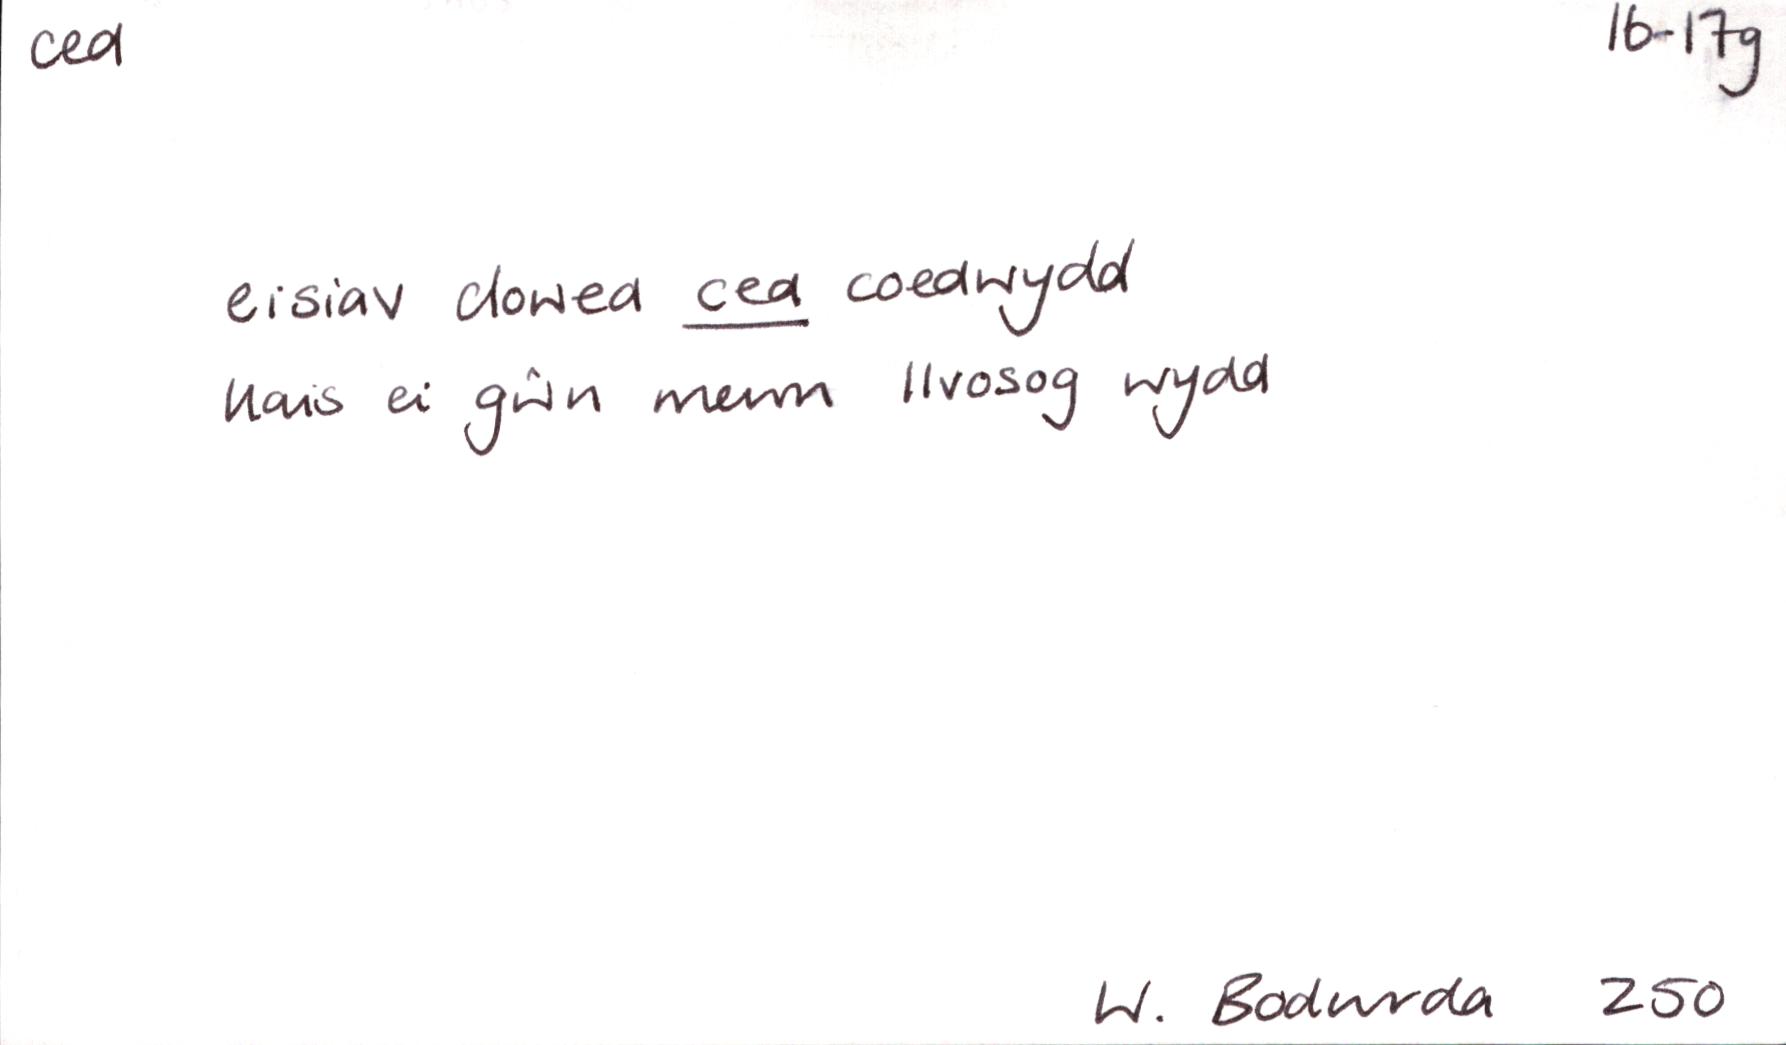 ced 16-17g
eisiav clowed ced coedwydd
llais ei gŵn mewn llvosog wydd
W. Bodwrda 250